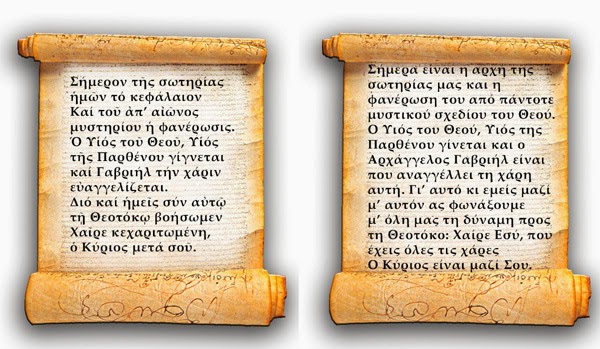 Σήμερον τῆς σωτηρίας
ἡμῶν τό κεφάλαιον
Καί τοῦ ἀπ’ αἰῶνος
μυστηρίου ἡ φανέρωσις.
Ὁ Υἱός τοῦ Θεοῦ, Υἱός
τῆς Παρθένου γίγνεται
καί Γαβριήλ τήν χάριν
εὐαγγελίζεται.
Διό καί ἡμεῖς σύν αὐτῷ
τῇ Θεοτόκῳ βοήσωμεν
Χαῖρε κεχαριτωμένη,
ὁ Κύριος μετά σοῦ.
Σήμερα είναι η αρχή της
σωτηρίας μας και η
φανέρωση του από πάντοτε
μυστικού σχεδίου του Θεού.
Ο Υιός του Θεού, Υιός της
Παρθένου γίνεται και ο
Αρχάγγελος Γαβριήλ είναι
που αναγγέλλει τη χάρη
αυτή. Γι’ αυτό κι εμείς μαζί
μ’ αυτόν ας φωνάξουμε
μ’ όλη μας τη δύναμη προς
τη Θεοτόκο: Χαίρε Εσύ, που
έχεις όλες τις χάρες
Ο Κύριος είναι μαζί Σου.